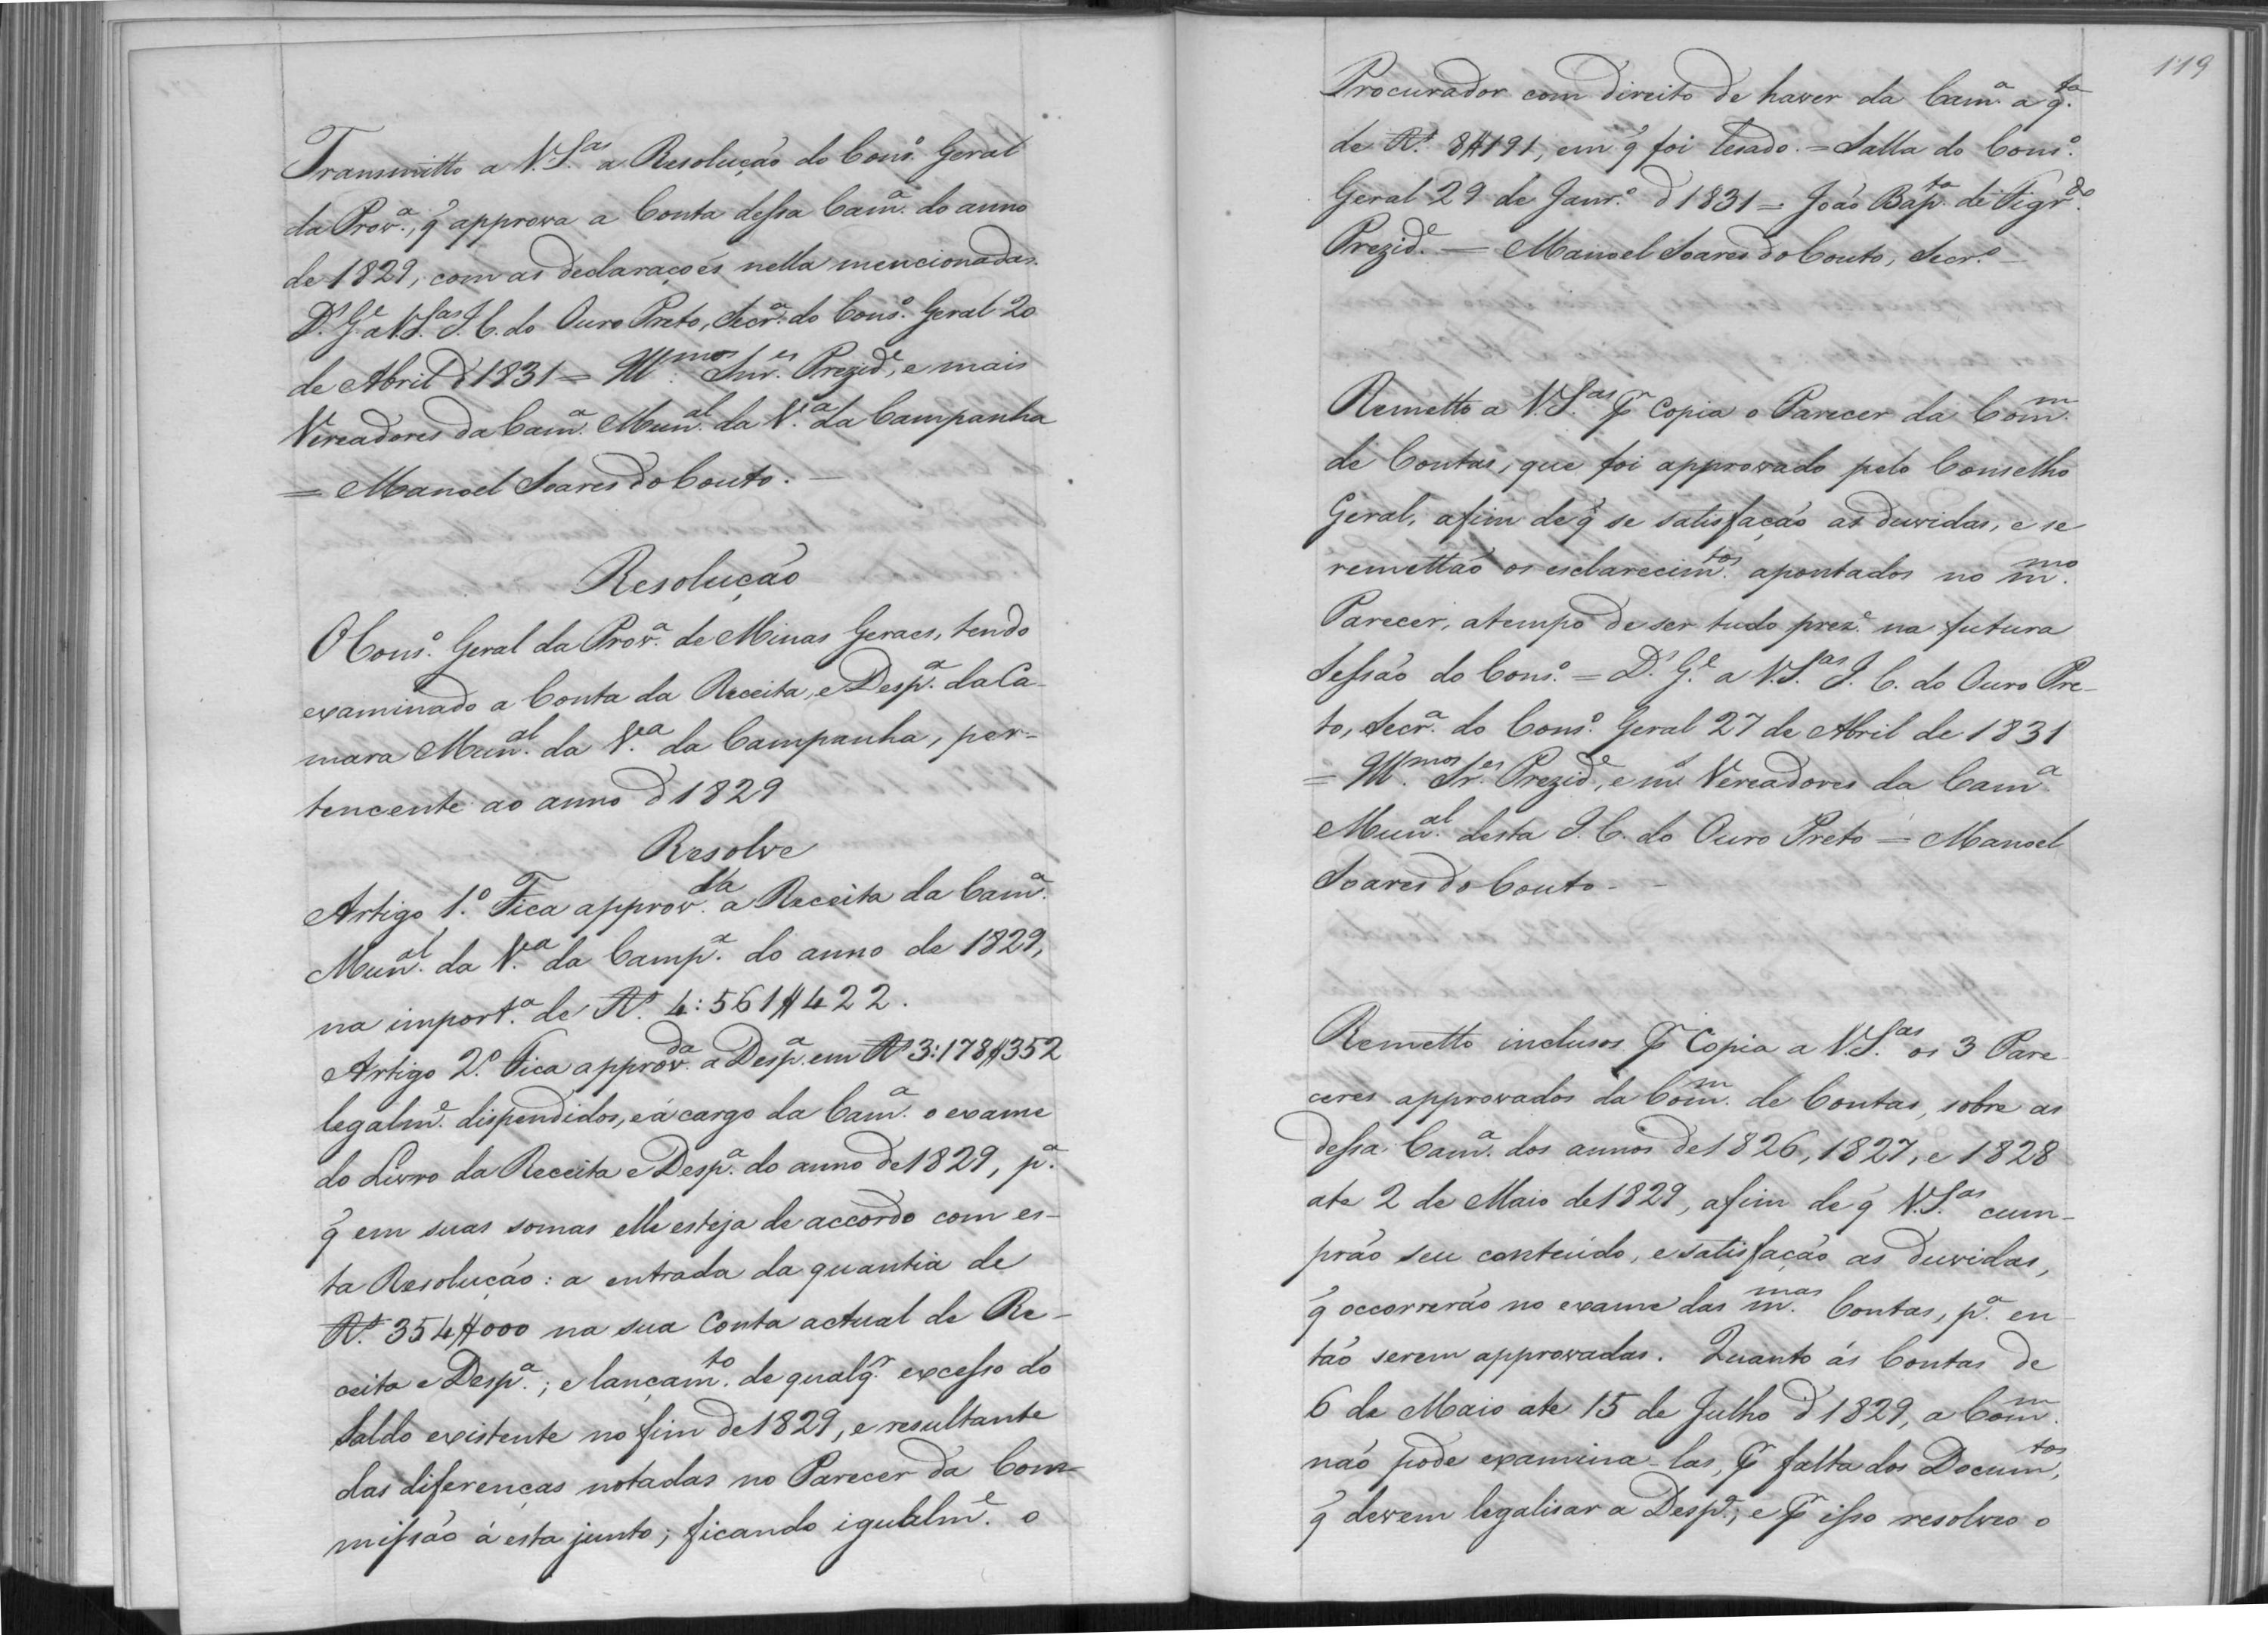 Transmitto a V. S.as a Resolução do Cons.o Geral
da Prov.a, q̃ approva a Conta dessa Cam.a do anno
de 1829, com as declarações nella mencionadas.
D.s G.e a V. S.as I. C. do Ouro Preto, Secr.a do Cons.o Geral 20
de Abril d' 1831 = Ill.mos Snr.es Prezid.e, e mais
Vereadores da Cam.a Mun.al da V.a da Campanha
= Manoel Soares do Couto. —
Resolução
O Cons.o Geral da Prov.a de Minas Geraes, tendo
examinado a Conta da Receita, e Desp.a da Ca-
mara Mun.al da V.a da Campanha, per-
tencente ao anno d' 1829
Resolve
Artigo 1.o Fica approv.da a Receita da Cam.a
Mun.al da V.a da Camp.a do anno de 1829,
na import.a de R.s 4:561$422.
Artigo 2.o Fica approv.da a Desp.a em R.s 3:178$352
legalm.e dispendidos, e á cargo da Cam.a o exame
do Livro da Receita e Desp.a do anno de 1829, p.a
q̃ em suas somas elle esteja de accordo com es-
ta Resolução: a entrada da quantia de
R.s 354$000 na sua Conta actual de Re-
ceita e Desp.a; e lançam.to de qualq.r excesso do
Saldo existente no fim de 1829, e resultante
das diferenças notadas no Parecer da Com-
missão á esta junto; ficando igualm.e o
119
Procurador com direito de haver da Cam.a a q.ta
de R.s 8$191, em q̃ foi lesado. = Salla do Cons.o
Geral 29 de Janr.o d' 1831 = João Bap.ta de Figr.do
Prezid.e — Manoel Soares do Couto, Secr.o —
Remetto a V. S.as p.r Copia o Parecer da Com.m
de Contas, que foi approvado pelo Conselho
Geral, afim de q̃ se satisfação as duvidas, e se
remettão os esclarecim.tos apontados no m.mo
Parecer, a tempo de ser tudo prez.e na futura
Sessão do Cons.o = D.s G.e a V. S.as I. C. do Ouro Pre-
to, Secr.a do Cons.o Geral 27 de Abril de 1831
= Ill.mos Sr.es Prezid.e, e m.s Vereadores da Cam.a
Mun.al desta I. C. do Ouro Preto = Manoel
Soares do Couto —
Remetto inclusos p.r Copia a V. S.as os 3 Pare-
ceres approvados da Com.m de Contas, sobre as
dessa Cam.a dos annos de 1826, 1827, e 1828
ate 2 de Maio de 1829, afim de q̃ V. S.as cum-
prão seu conteúdo, e satisfação as duvidas,
q̃ occorrerão no exame das m.mas Contas, p.a en-
tão serem approvadas. Quanto ás Contas de
6 de Maio ate 15 de Julho d' 1829, a Com.m
não pode examina-las, p.r falta dos Docum.tos,
q̃ devem legalisar a Desp.a, e p.r isso resolveo o